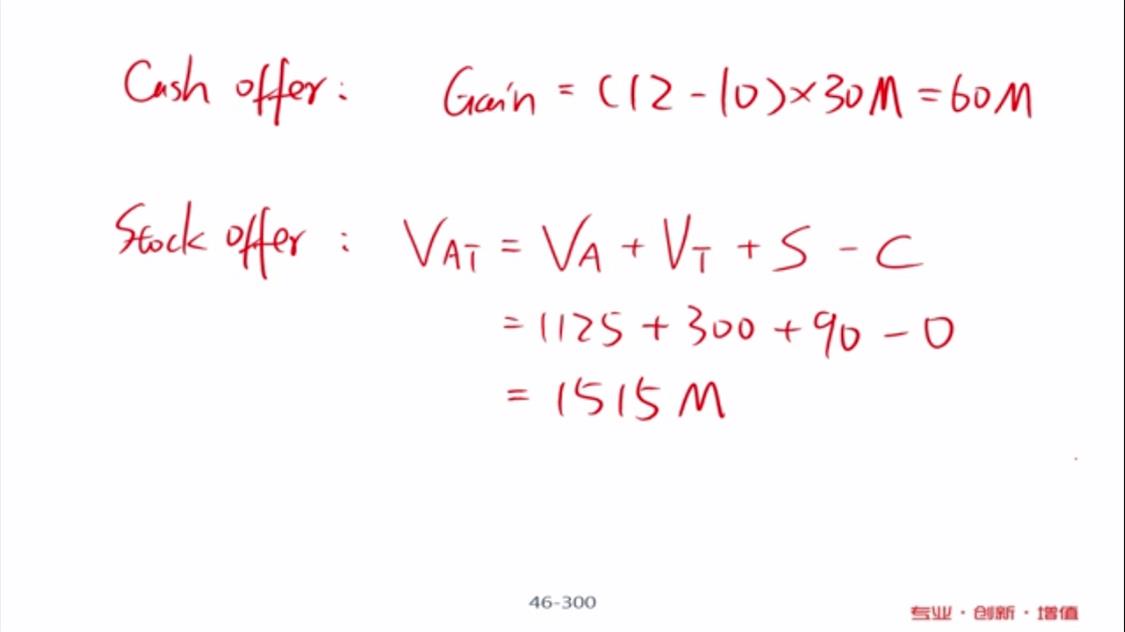 Cash offer: Gain = (12-10)×30M=60M
Stock offer: VAT = VA + VT + S - C
= 1125 + 300 + 90 - 0
= 1515 M
46-300
专业·创新·增值